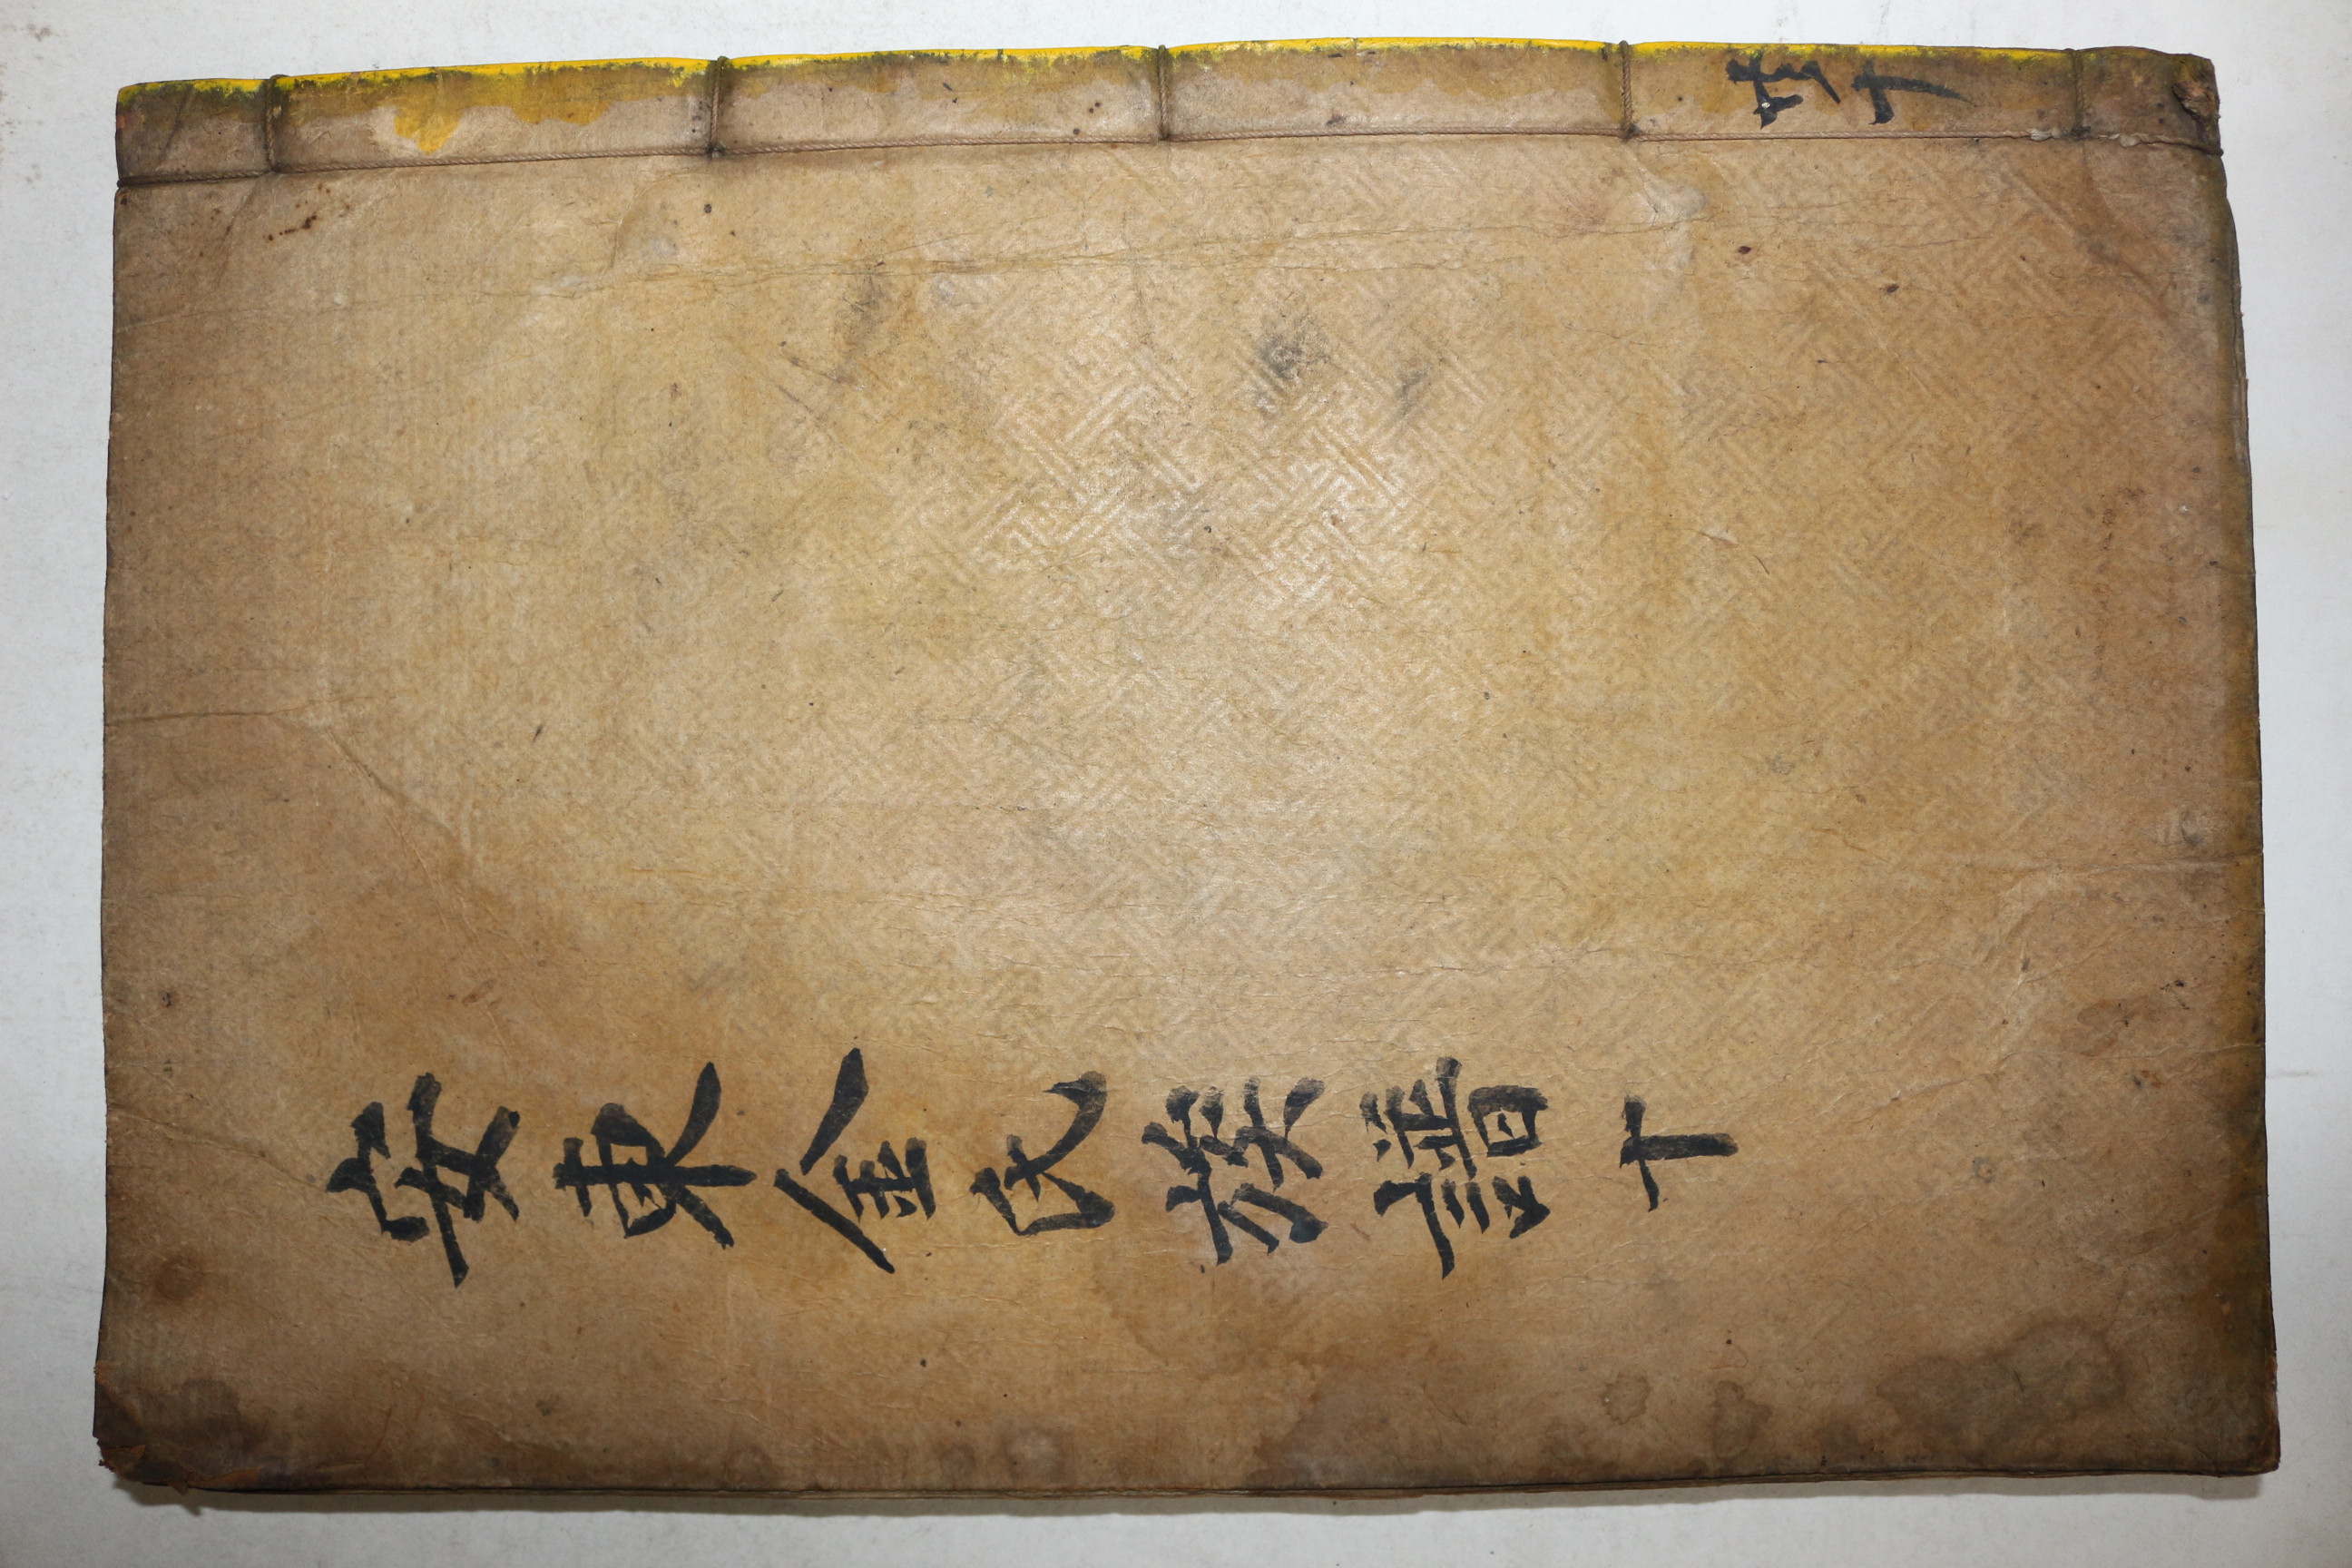 安東金氏族譜 十
共十